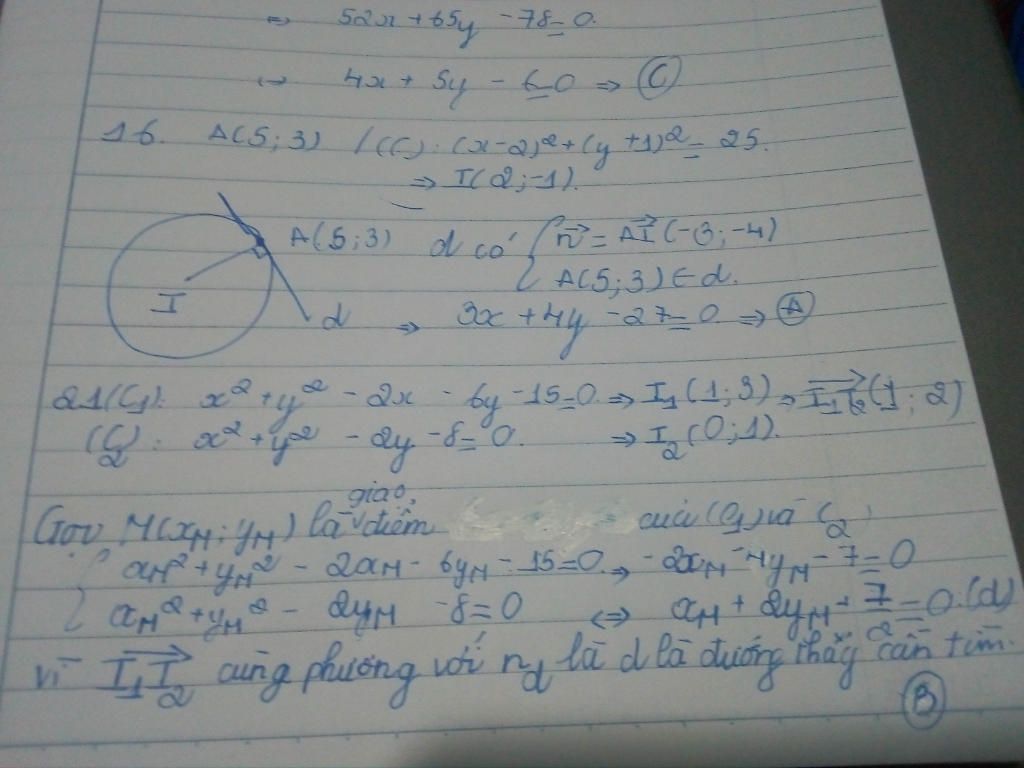 ⇔ 52x + 65y - 78 = 0.
⇔ 4x + 5y - 6 = 0 ⇒ Ⓒ
16. A(5;3) /(C): (x-2)² + (y+1)² = 25.
⇒ I(2;-1).
A(5;3) d có { n⃗ = AI⃗ (-3;-4)
A(5;3) ∈ d.
I
d ⇒ 3x + 4y - 27 = 0 ⇒ Ⓐ
21 (C₁): x² + y² - 2x - 6y - 15 = 0 ⇒ I₁(1;3) ⇒ I₁I₂⃗ (1;2)
(C₂): x² + y² - 2y - 8 = 0. ⇒ I₂(0;1).
Gọi M(x_M; y_M) là giao điểm của (C₁) và C₂)
{ x_M² + y_M² - 2x_M - 6y_M - 15 = 0. ⇒ -2x_M - 4y_M - 7 = 0
x_M² + y_M² - 2y_M - 8 = 0 ⇔ x_M + 2y_M + 7/2 = 0 (d)
vì I₁I₂⃗ cùng phương với n_d là d là đường thẳg cần tìm.
Ⓑ